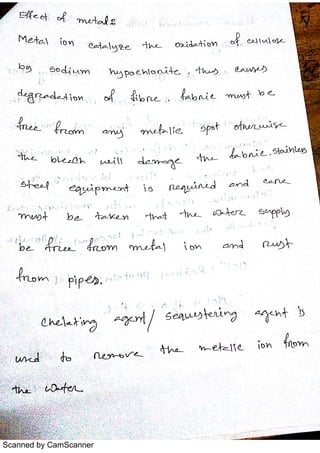 Effect of metals
Metal ion catalyze the oxidation of cellulose
by sodium hypochlorite, thus causes
degradation of fibre. fabric must be
free from any metalic spot otherwise
the bleach will damage the fabric. Stainless
steel equipment is required and care
must be taken that the water supply
be free from metal ion and rust
from pipes.
Chelating agent/ sequestering agent is
used to remove the metalic ion from
the water
Scanned by CamScanner